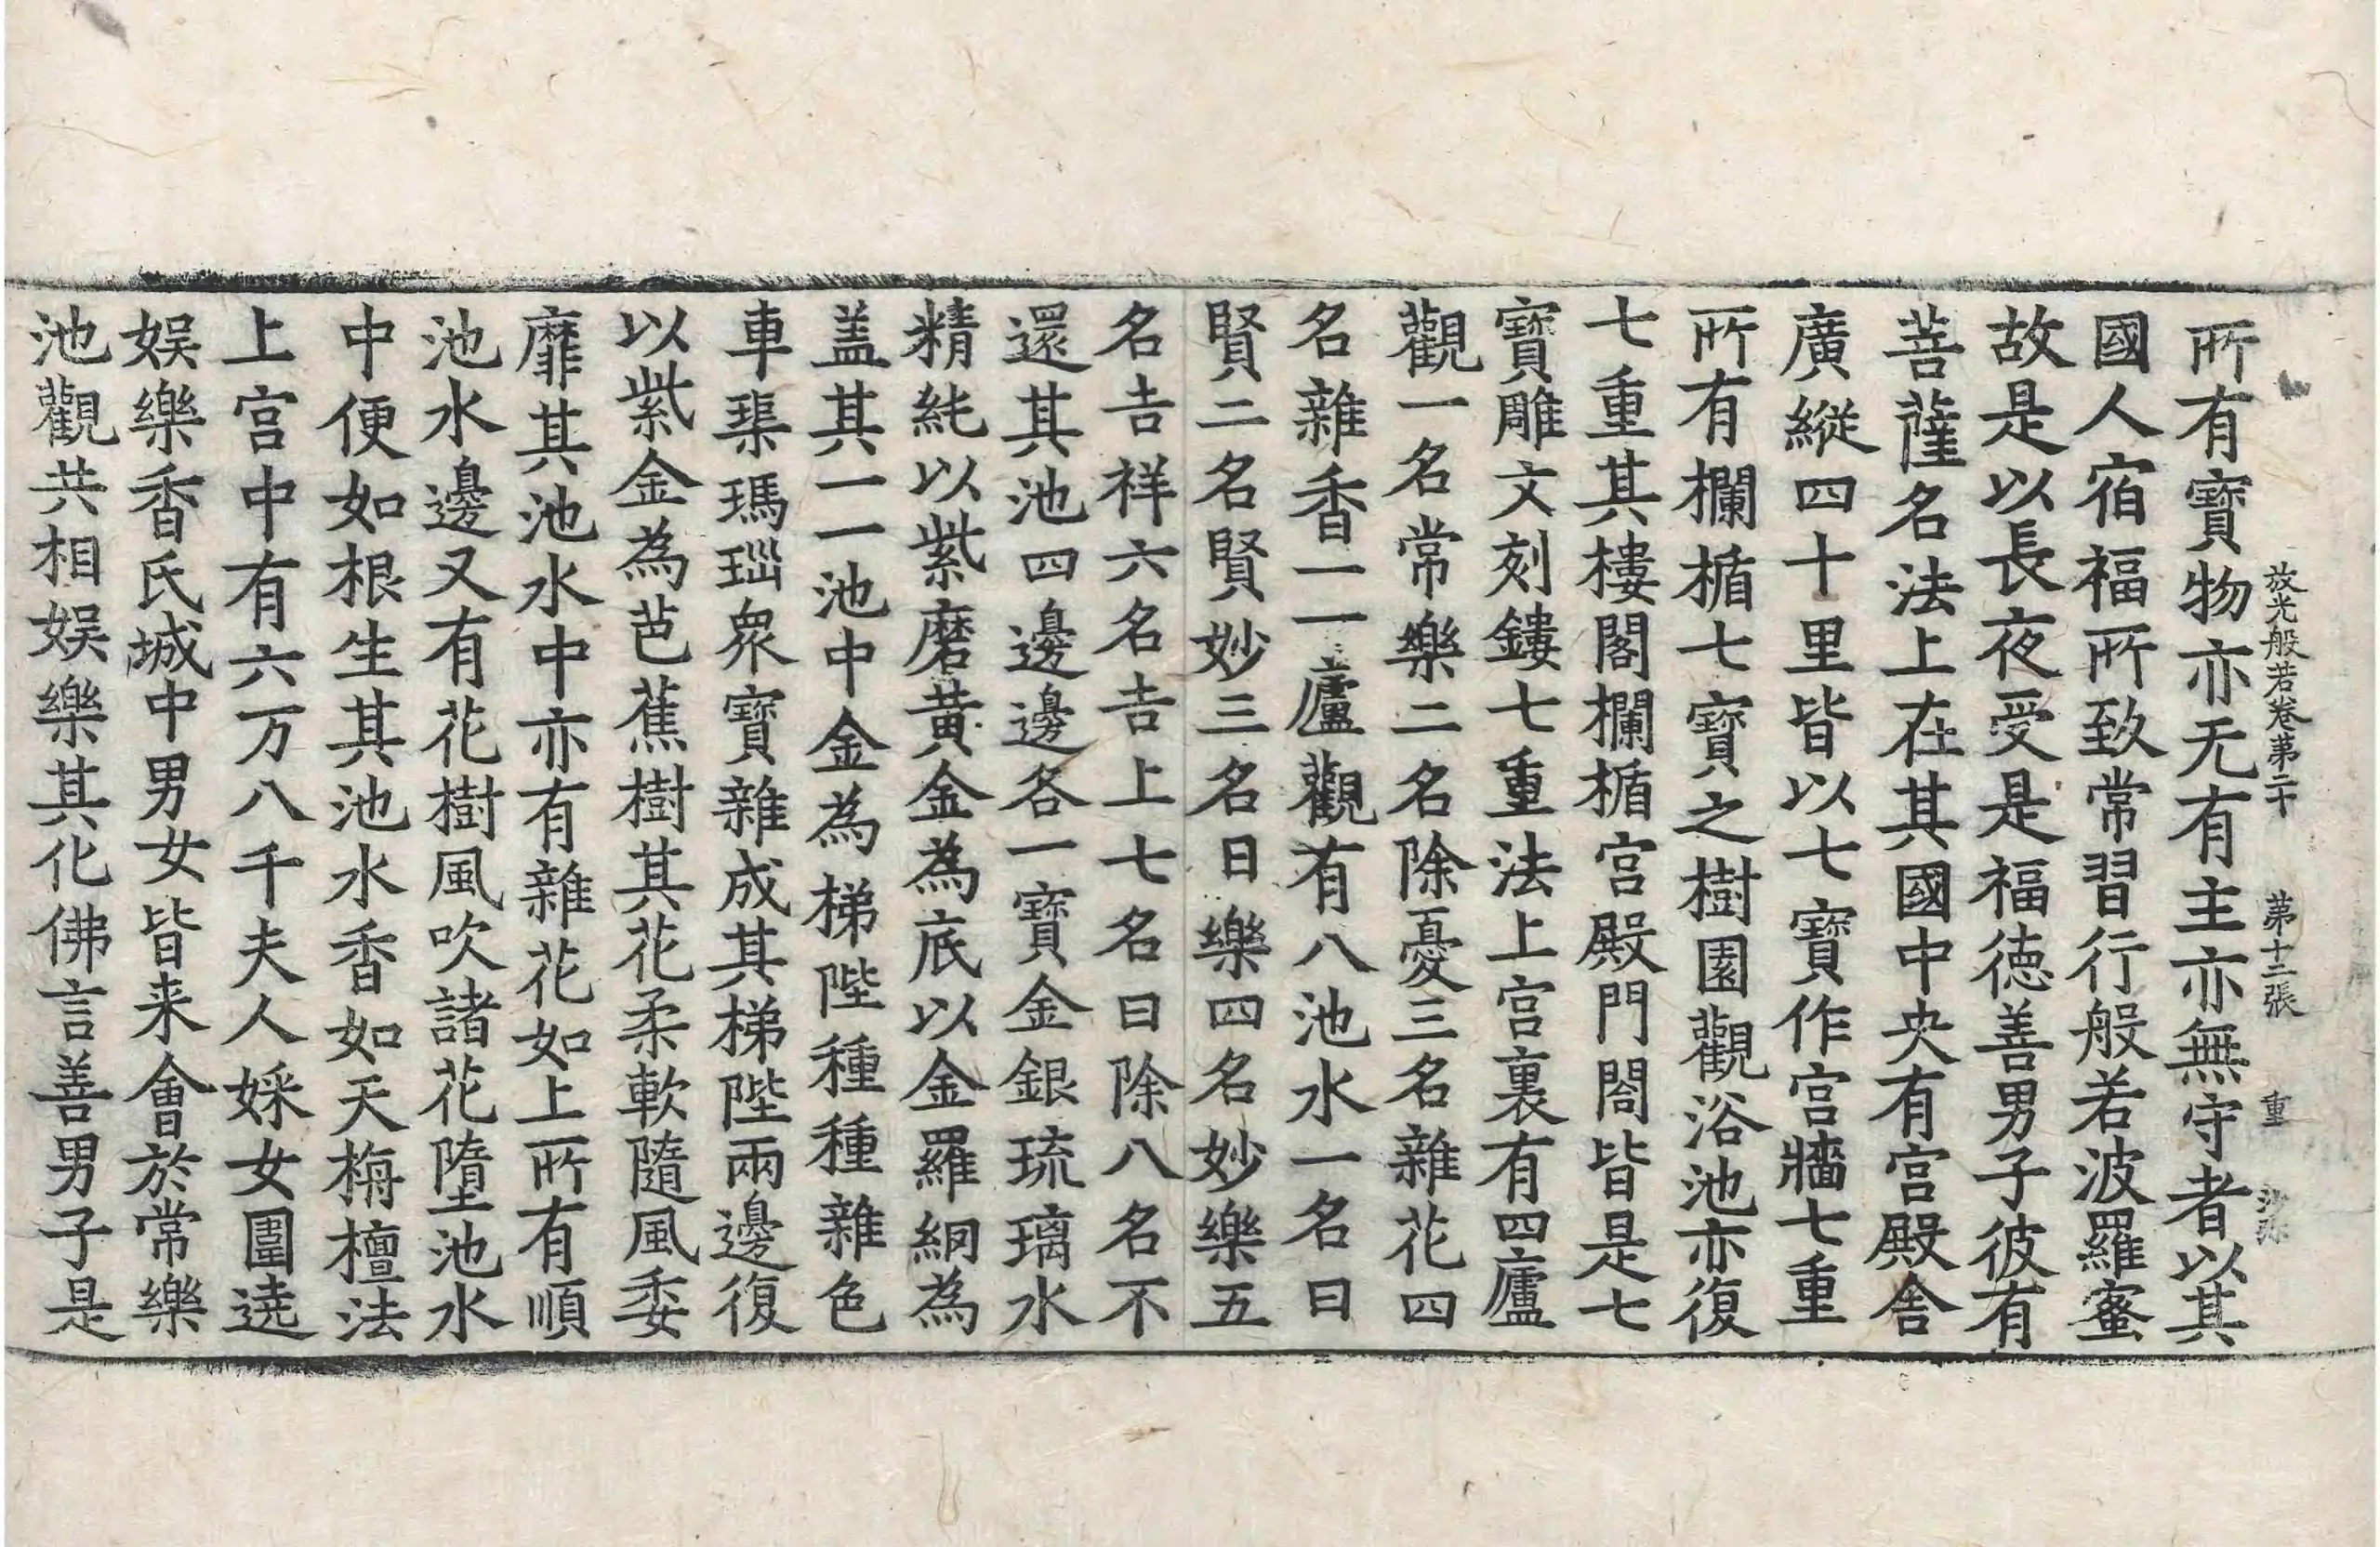 放光般若卷第二十 第十二張 重
所有寶物亦无有主亦無守者以其
國人宿福所致常習行般若波羅蜜
故是以長夜受是福德善男子彼有
菩薩名法上在其國中央有宮殿舎
廣縱四十里皆以七寶作宮牆七重
所有欄楯七寶之樹園觀浴池亦復
七重其樓閣欄楯宮殿門閤皆是七
寶雕文刻鏤七重法上宮裏有四廬
觀一名常樂二名除憂三名雜花四
名雜香一一廬觀有八池水一名曰
賢二名賢妙三名曰樂四名妙樂五
名吉祥六名吉上七名曰除八名不
還其池四邊邊各一寶金銀琉璃水
精純以紫磨黃金為底以金羅網為
盖其一一池中金為梯陛種種雜色
車璖瑪瑙衆寶雜成其梯陛兩邊復
以紫金為芭蕉樹其花柔軟隨風委
靡其池水中亦有雜花如上所有順
池水邊又有花樹風吹諸花墮池水
中便如根生其池水香如天栴檀法
上宮中有六万八千夫人婇女圍遶
娱樂香氏城中男女皆来會於常樂
池觀共相娱樂其化佛言善男子是